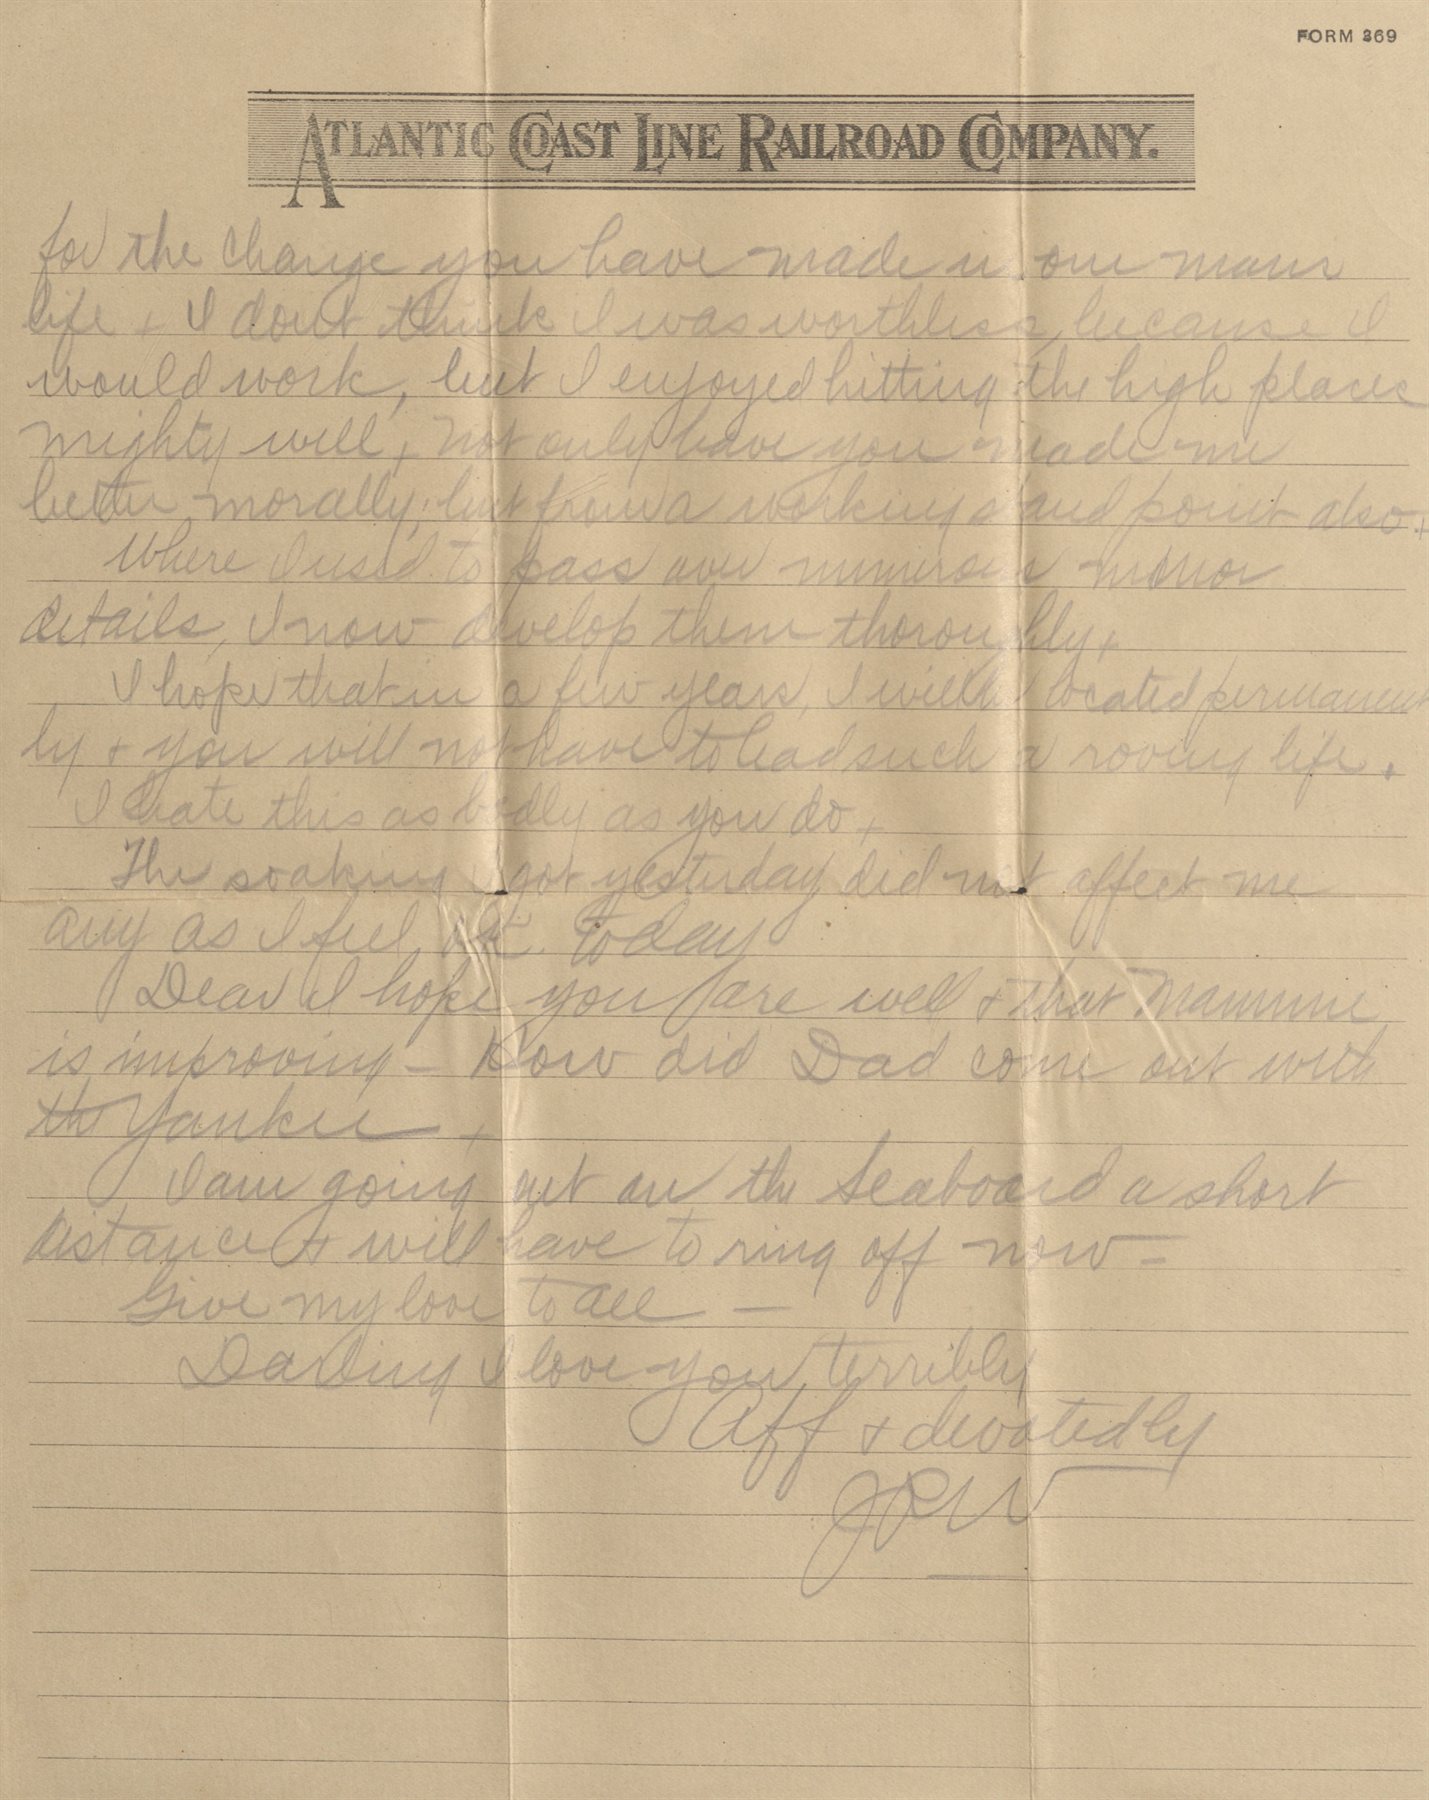 FORM 369
ATLANTIC COAST LINE RAILROAD COMPANY.
for the change you have made in one mans
life + I dont think I was worthless, because I
would work, but I enjoyed hitting the high places
mighty well, + not only have you made me
better morally, but from a working stand point also. +
Where I used to pass over numerous minor
details, I now develop them thoroughly +
I hope that in a few years, I will be located permanent
ly + you will not have to lead such a roving life. +
I hate this as badly as you do, +
The soaking I got yesterday did not affect me
any as I feel, O.K. today
Dear I hope you are well + that Mammie
is improving - How did Dad come out with
the Yankee +
I am going out on the Seaboard a short
distance + will have to ring off now -
Give my love to all -
Darling I love you terribly
Aff + devotedly
JRW